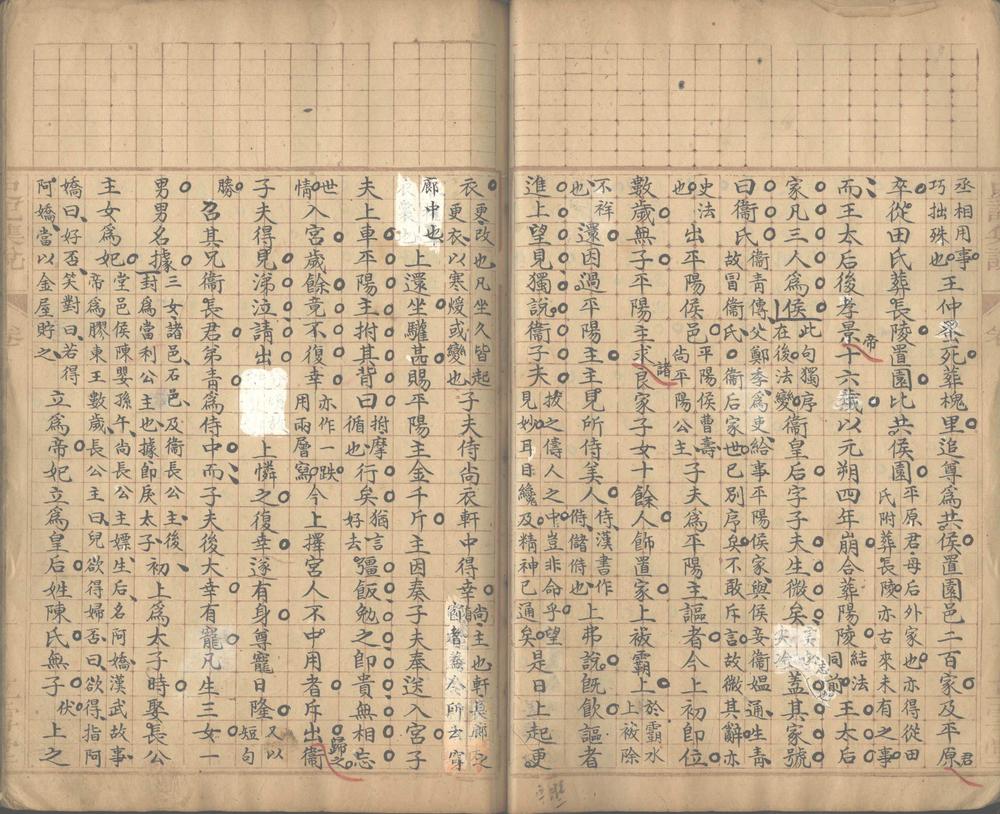 丞相用事
巧拙殊也
王仲蚤死葬槐里追尊為共侯置園邑二百家及平原君
卒從田氏葬長陵置園比共侯園
平原君母后外家也亦得從田
氏附葬長陵亦古來未有之事
而王太后後孝景帝十六歲以元朔四年崩合葬陽陵
結法
同前
王太后
家凡三人為侯
此句獨序
在後法變
衛皇后字子夫生微矣
蓋其家號
曰衛氏
衛青傳父鄭季為吏給事平陽侯家與侯妾衛媼通生青
故冒衛氏衛后家世已別序矣不敢斥言故微其辭亦
史法
也
出平陽侯邑
平陽侯曹壽
尚平陽公主
子夫為平陽主謳者今上初即位
數歲無子平陽主求諸良家子女十餘人飾置家上被霸上
於霸水
上被除
不祥
也
還因過平陽主主見所侍美人
侍漢書作
偫儲偫也
上弗說既飲謳者
進上望見獨說衛子夫
拔之儔人之中豈非命乎望
見妙耳目纔及精神已通矣
是日上起更
衣
更改也凡坐久皆起
更衣以寒煖或變也
子夫侍尚衣軒中得幸
尚主也軒長廊之
廊中也
上還坐驩甚賜平陽主金千斤主因奏子夫奉送入宮子
夫上車平陽主拊其背曰
拊摩
循也
行矣
猶言
好去
彊飯勉之即貴無相忘
世
情
入宮歲餘竟不復幸
亦作一跌
用兩層寫
今上擇宮人不中用者斥出歸之衛
子夫得見涕泣請出
上憐之復幸遂有身尊寵日隆
又以
短句
勝
召其兄衛長君弟青為侍中而子夫後大幸有寵凡生三女一
男男名據
三女諸邑石邑及衛長公主後
封為當利公主也據即戾太子
初上為太子時娶長公
主女為妃
堂邑侯陳嬰孫午尚長公主嫖生后名阿嬌漢武故事
帝為膠東王數歲長公主曰兒欲得婦否曰欲得指阿
嬌曰好否笑對曰若得
阿嬌當以金屋貯之
立為帝妃立為皇后姓陳氏無子
伏
上之